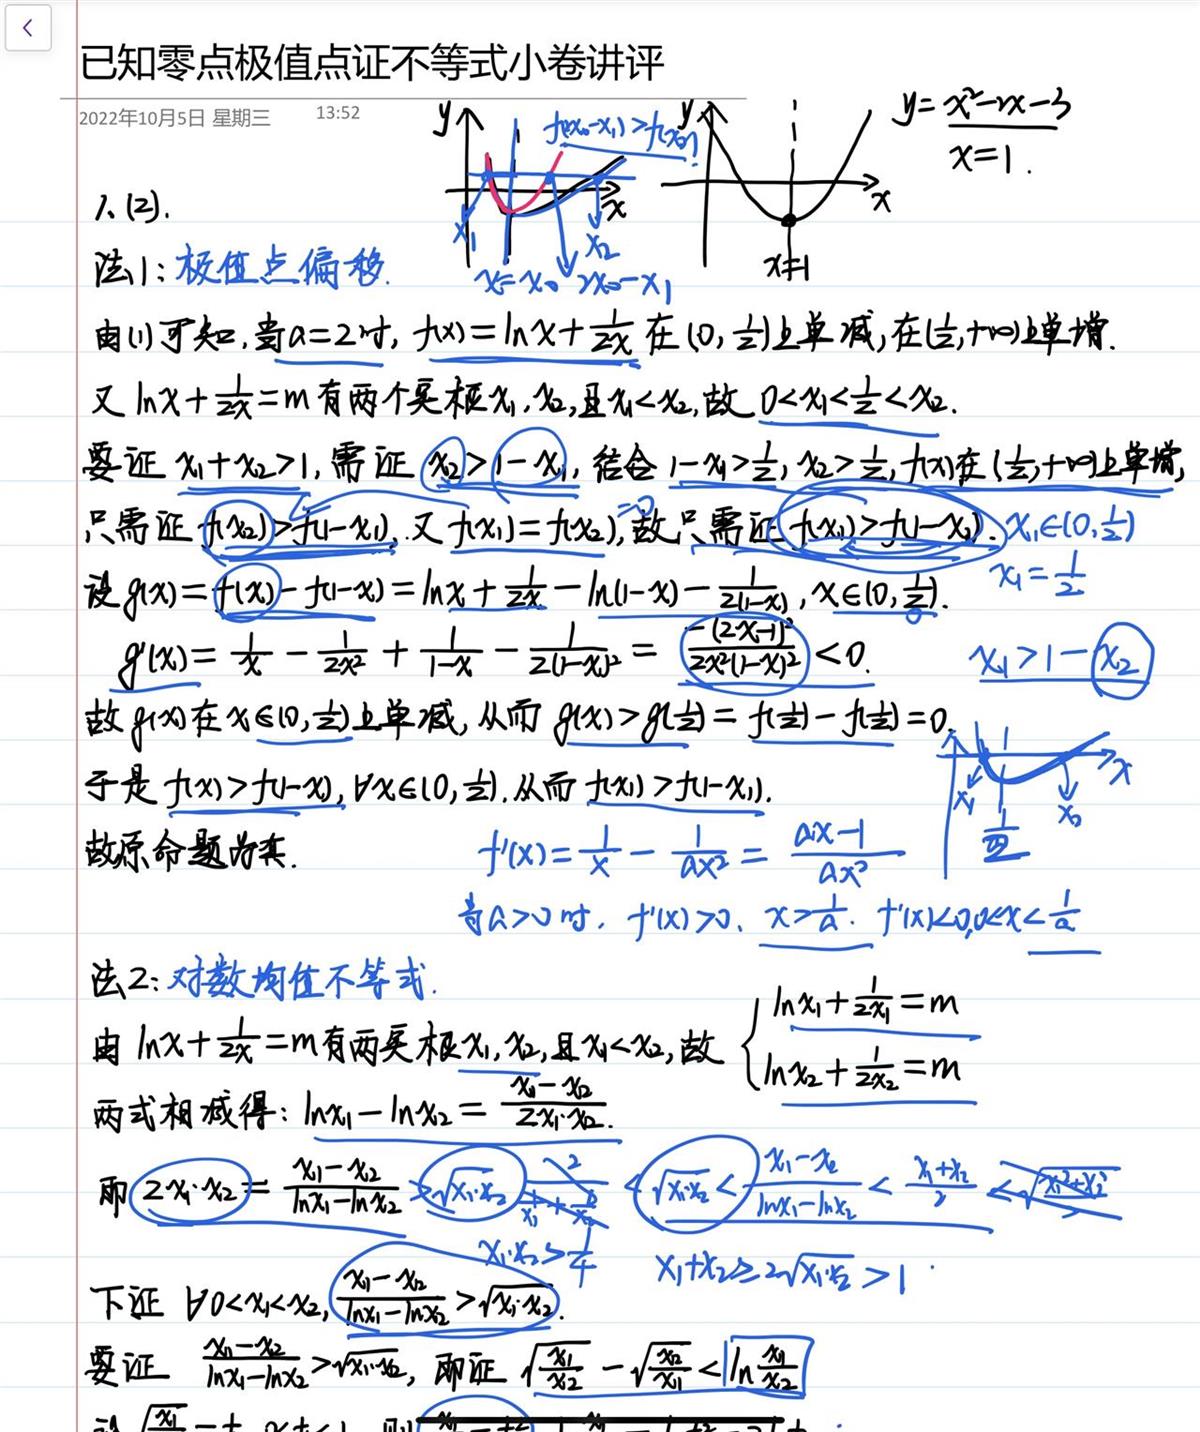 已知零点极值点证不等式小卷讲评
2022年10月5日 星期三 13:52
y f(2x₀-x₁)>f(x₀)? y y=x²-2x-3
x=1.
x x
x₁ x₂
x=x₀ 2x₀-x₁ x=1
1、(2).
法1:极值点偏移.
由(1)可知,当a=2时, f(x)=lnx+1/(2x) 在(0,1/2)上单减,在(1/2,+∞)上单增.
又 lnx+1/(2x)=m有两个实根x₁,x₂,且x₁<x₂,故 0<x₁<1/2<x₂.
要证 x₁+x₂>1,需证 x₂>1-x₁, 结合 1-x₁>1/2, x₂>1/2, f(x)在(1/2,+∞)上单增,
只需证 f(x₂)>f(1-x₁). 又 f(x₁)=f(x₂),故只需证 f(x₁)>f(1-x₁). x₁∈(0,1/2)
x₁=1/2
设g(x)=f(x)-f(1-x)=lnx+1/(2x)-ln(1-x)-1/(2(1-x)), x∈(0,1/2).
g'(x)=1/x-1/(2x²)+1/(1-x)-1/(2(1-x)²)=-(2x-1)²/(2x²(1-x)²)<0. x₁>1-x₂
故g(x)在x∈(0,1/2)上单减,从而 g(x)>g(1/2)=f(1/2)-f(1/2)=0.
于是 f(x)>f(1-x), ∀x∈(0,1/2).从而 f(x₁)>f(1-x₁).
x₁ x₂ x
故原命题为真. f'(x)=1/x-1/(ax²)=(ax-1)/(ax²)
当a>0时, f'(x)>0, x>1/a. f'(x)<0,0<x<1/a
法2:对数均值不等式.
由 lnx+1/(2x)=m有两实根x₁,x₂,且x₁<x₂,故 { lnx₁+1/(2x₁)=m
lnx₂+1/(2x₂)=m
两式相减得: lnx₁-lnx₂=(x₁-x₂)/(2x₁·x₂).
即 2x₁·x₂=(x₁-x₂)/(lnx₁-lnx₂)>√(x₁·x₂) 2/(1/x₁+1/x₂) < √(x₁·x₂)<(x₁-x₂)/(lnx₁-lnx₂)<(x₁+x₂)/2<√((x₁²+x₂²)/2)
x₁·x₂>1/4 x₁+x₂≥2√(x₁·x₂)>1.
下证 ∀0<x₁<x₂, (x₁-x₂)/(lnx₁-lnx₂)>√(x₁·x₂).
要证 (x₁-x₂)/(lnx₁-lnx₂)>√(x₁·x₂), 即证 √(x₁/x₂)-√(x₂/x₁)<ln(x₁/x₂)